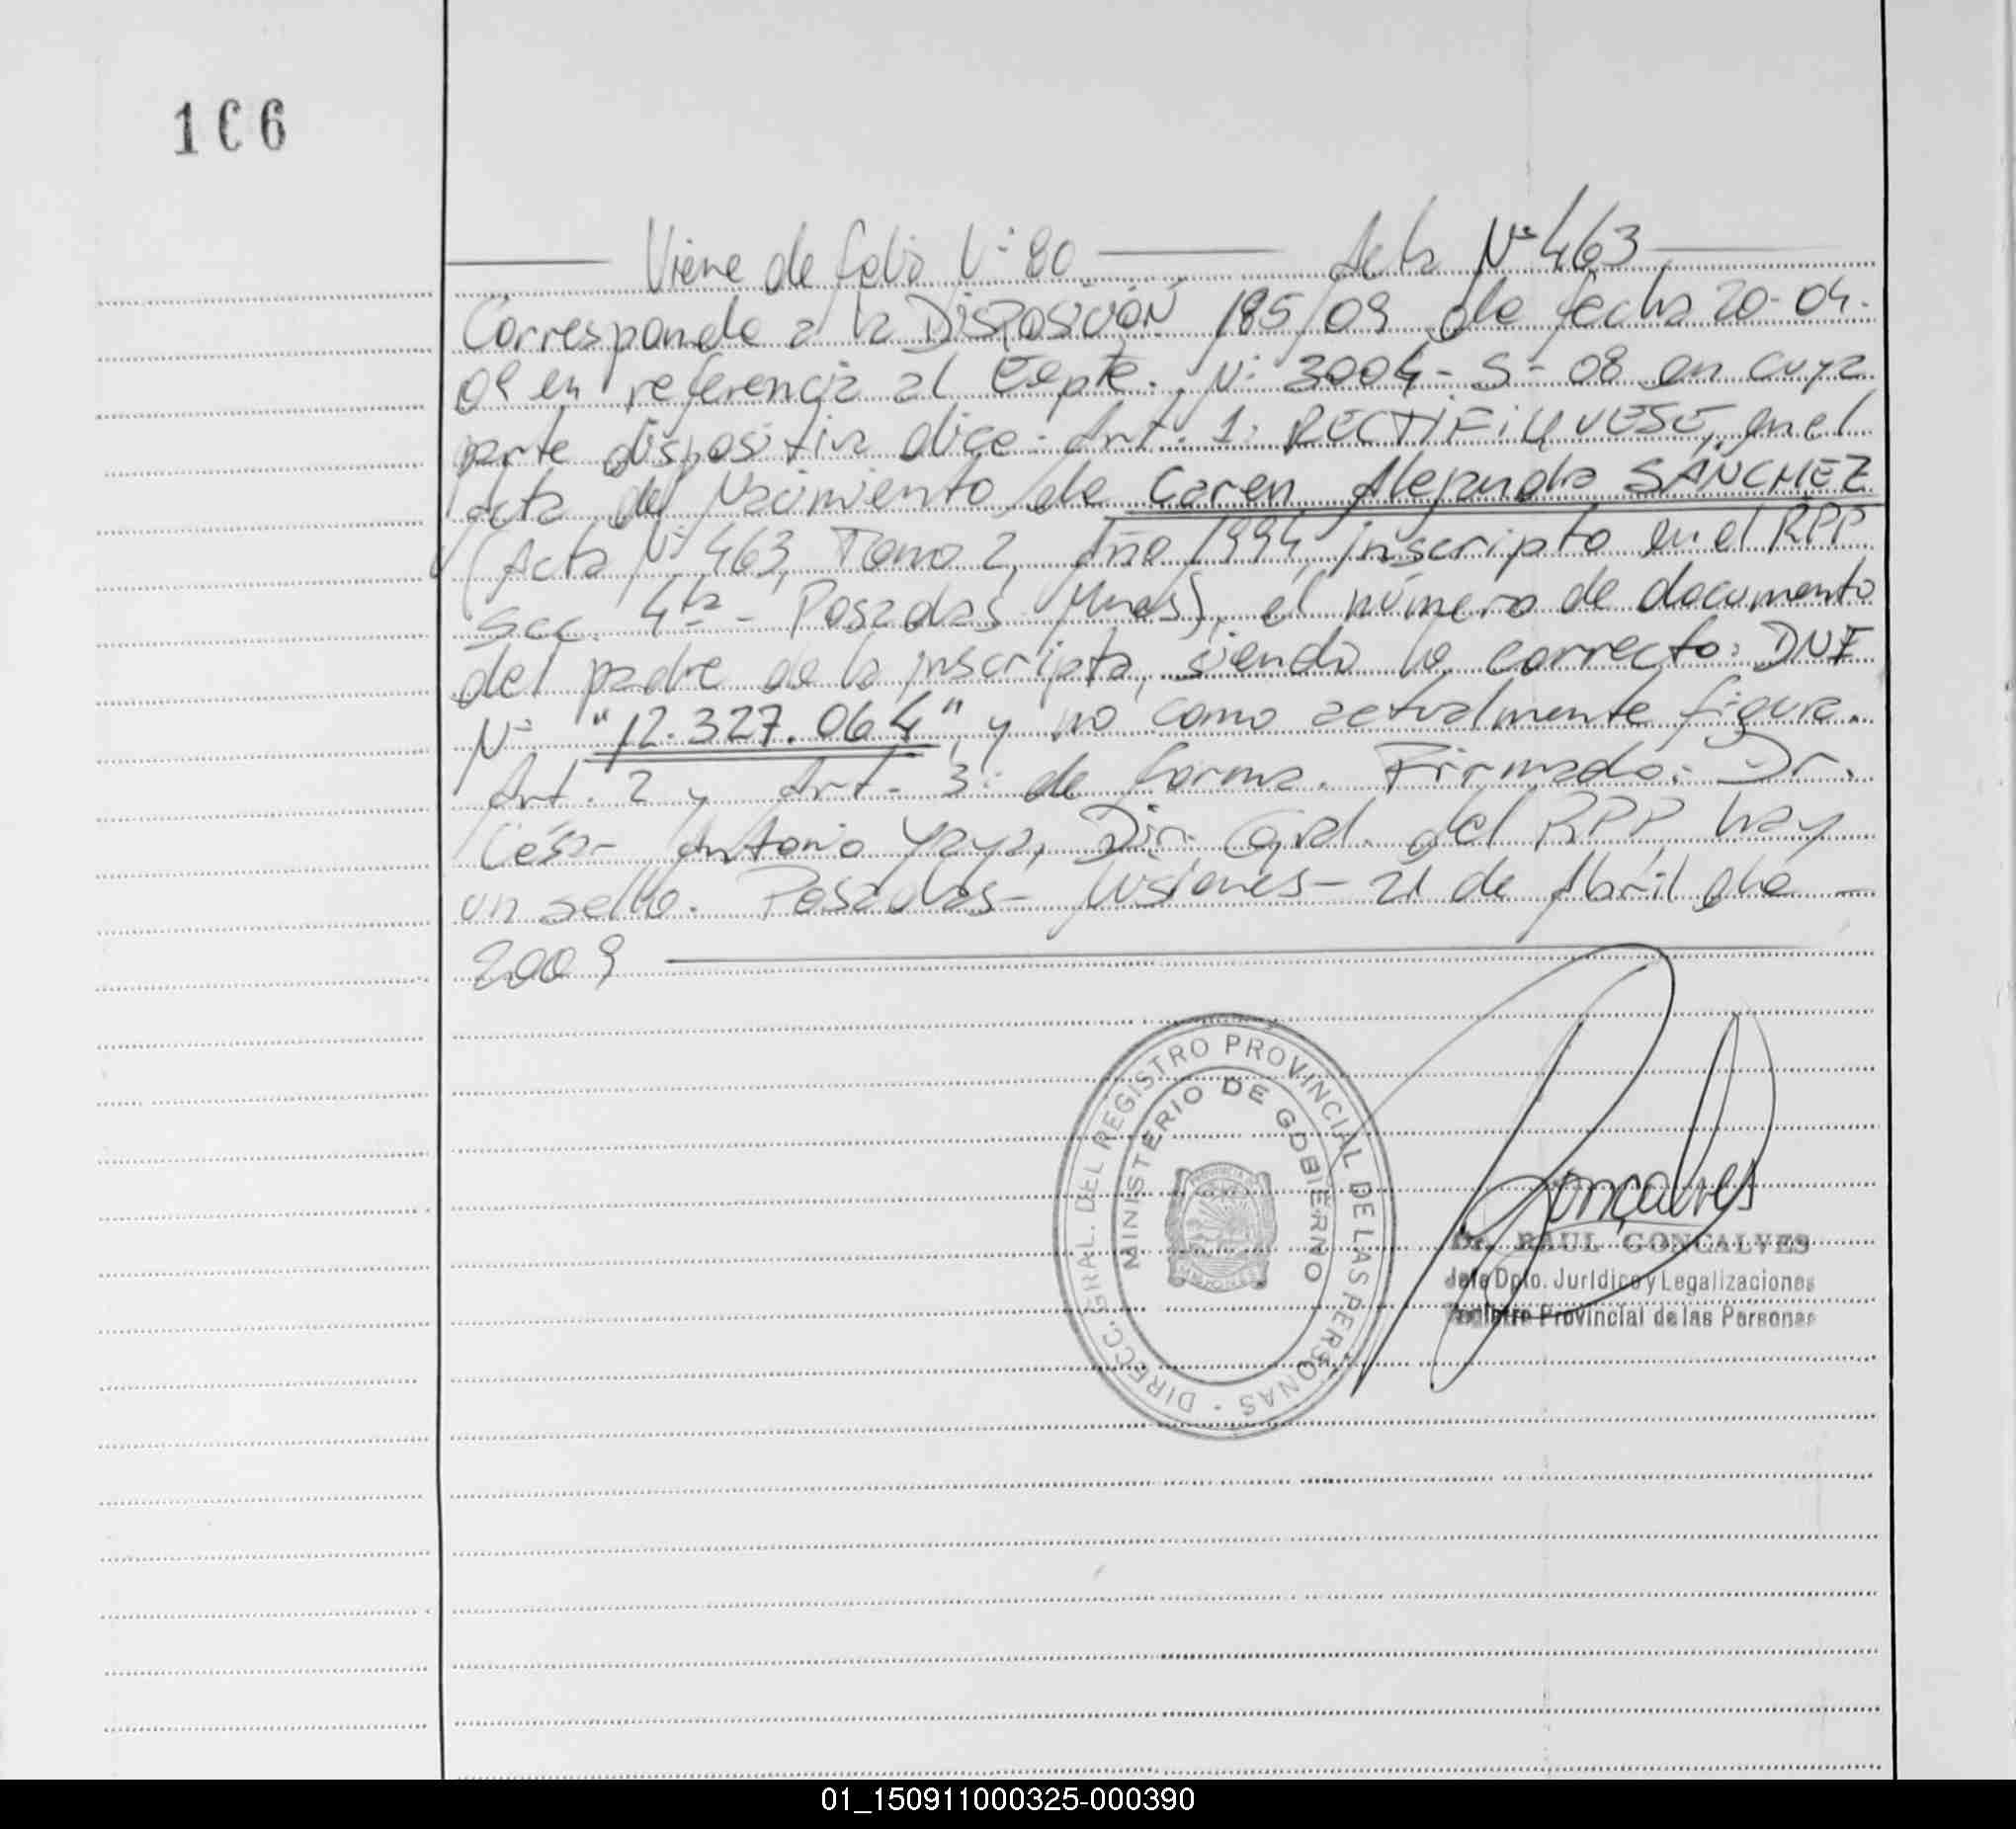 106
Viene de folio Nº 80 Acta Nº 463
Corresponde a la DISPOSICIÓN 185/09 de fecha 20-04-
09 en referencia al Expte. Nº 3004-S-08 en cuya
parte dispositiva dice: Art. 1: RECTIFIQUESE, en el
Acta de Nacimiento de Caren Alejandra SÁNCHEZ
(Acta Nº 463, Tomo 2, Año 1994, inscripto en el RPP
Secc. 4ta - Posadas Mnes), el número de documento
del padre de la inscripta, siendo lo correcto: DNI
Nº "12.327.064", y no como actualmente figura.
Art. 2 y Art. 3: de forma. Firmado: Dr.
César Antonio Yaya, Dir. Gral. del RPP, hay
un sello. Posadas - Misiones - 21 de Abril de -
2009
DIRECC. GRAL. DEL REGISTRO PROVINCIAL DE LAS PERSONAS
MINISTERIO DE GOBIERNO
MISIONES
Gonçalves
Dr. RAUL GONCALVES
Jefe Dpto. Jurídico y Legalizaciones
Registro Provincial de las Personas
01_150911000325-000390